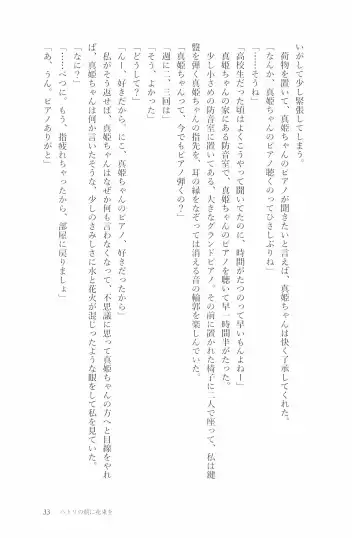 いがして少し緊張してしまう。
荷物を置いて、真姫ちゃんのピアノが聞きたいと言えば、真姫ちゃんは快く了承してくれた。
「なんか、真姫ちゃんのピアノ聴くのってひさしぶりね」
「……そうね」
「高校生だった頃はよくこうやって聞いてたのに、時間がたつのって早いもんよねー」
真姫ちゃんの家にある防音室で、真姫ちゃんのピアノを聴いて早一時間半がたった。
少し小さめの防音室に置いてある、大きなグランドピアノ。その前に置かれた椅子に二人で座って、私は鍵
盤を弾く真姫ちゃんの指先を、耳の縁をなぞっては消える音の輪郭を楽しんでいた。
「真姫ちゃんって、今でもピアノ弾くの？」
「週に二、三回は」
「そう、よかった」
「どうして？」
「んー、好きだから。にこ、真姫ちゃんのピアノ、好きだったから」
私がそう返せば、真姫ちゃんはなぜか何も言わなくなって、不思議に思って真姫ちゃんの方へと目線をやれ
ば、真姫ちゃんは何か言いたそうな、少しのさみしさに水と花火が混じったような眼をして私を見ていた。
「なに？」
「……べつに。もう、指疲れちゃったから、部屋に戻りましょ」
「あ、うん。ピアノありがと」
33
ハトリの前に花束を